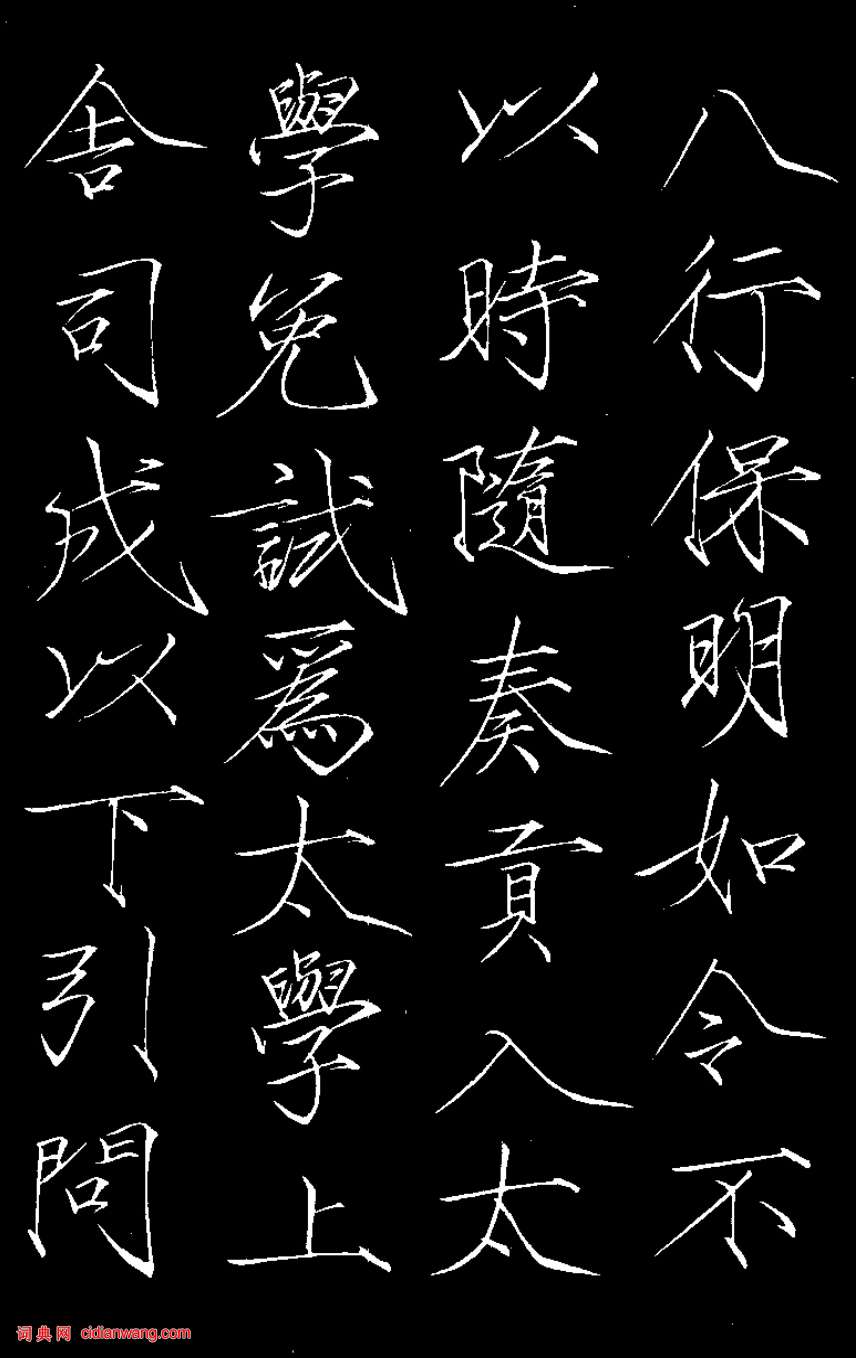 八行保明如令不
以時隨奏貢入太
學免試為太學上
舍司成以下引問
词典网 cidianwang.com